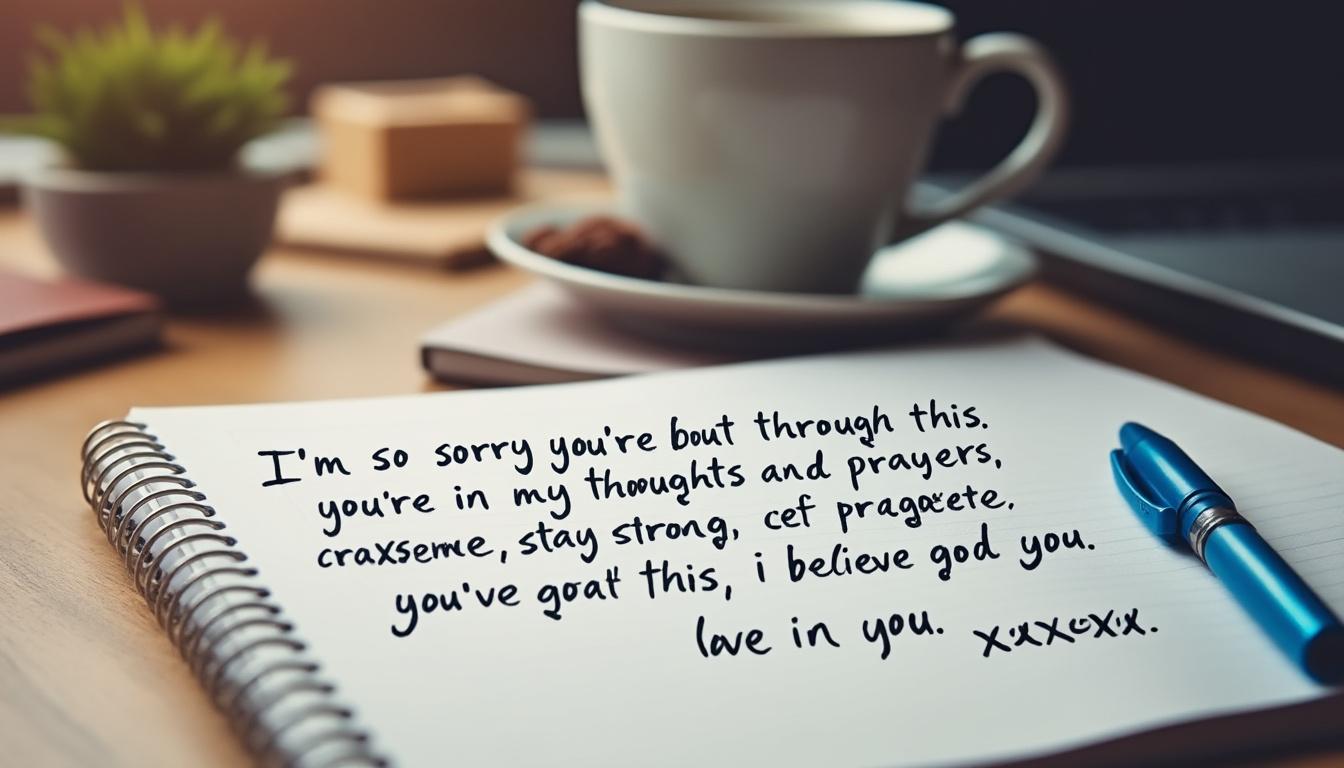 I'm so sorry you're bout through this.
you're in my thooughts and prayers,
craxseme, stay strong, cef pragœete.
you've goat this, i believe god you.
love in you. x.xxexx.